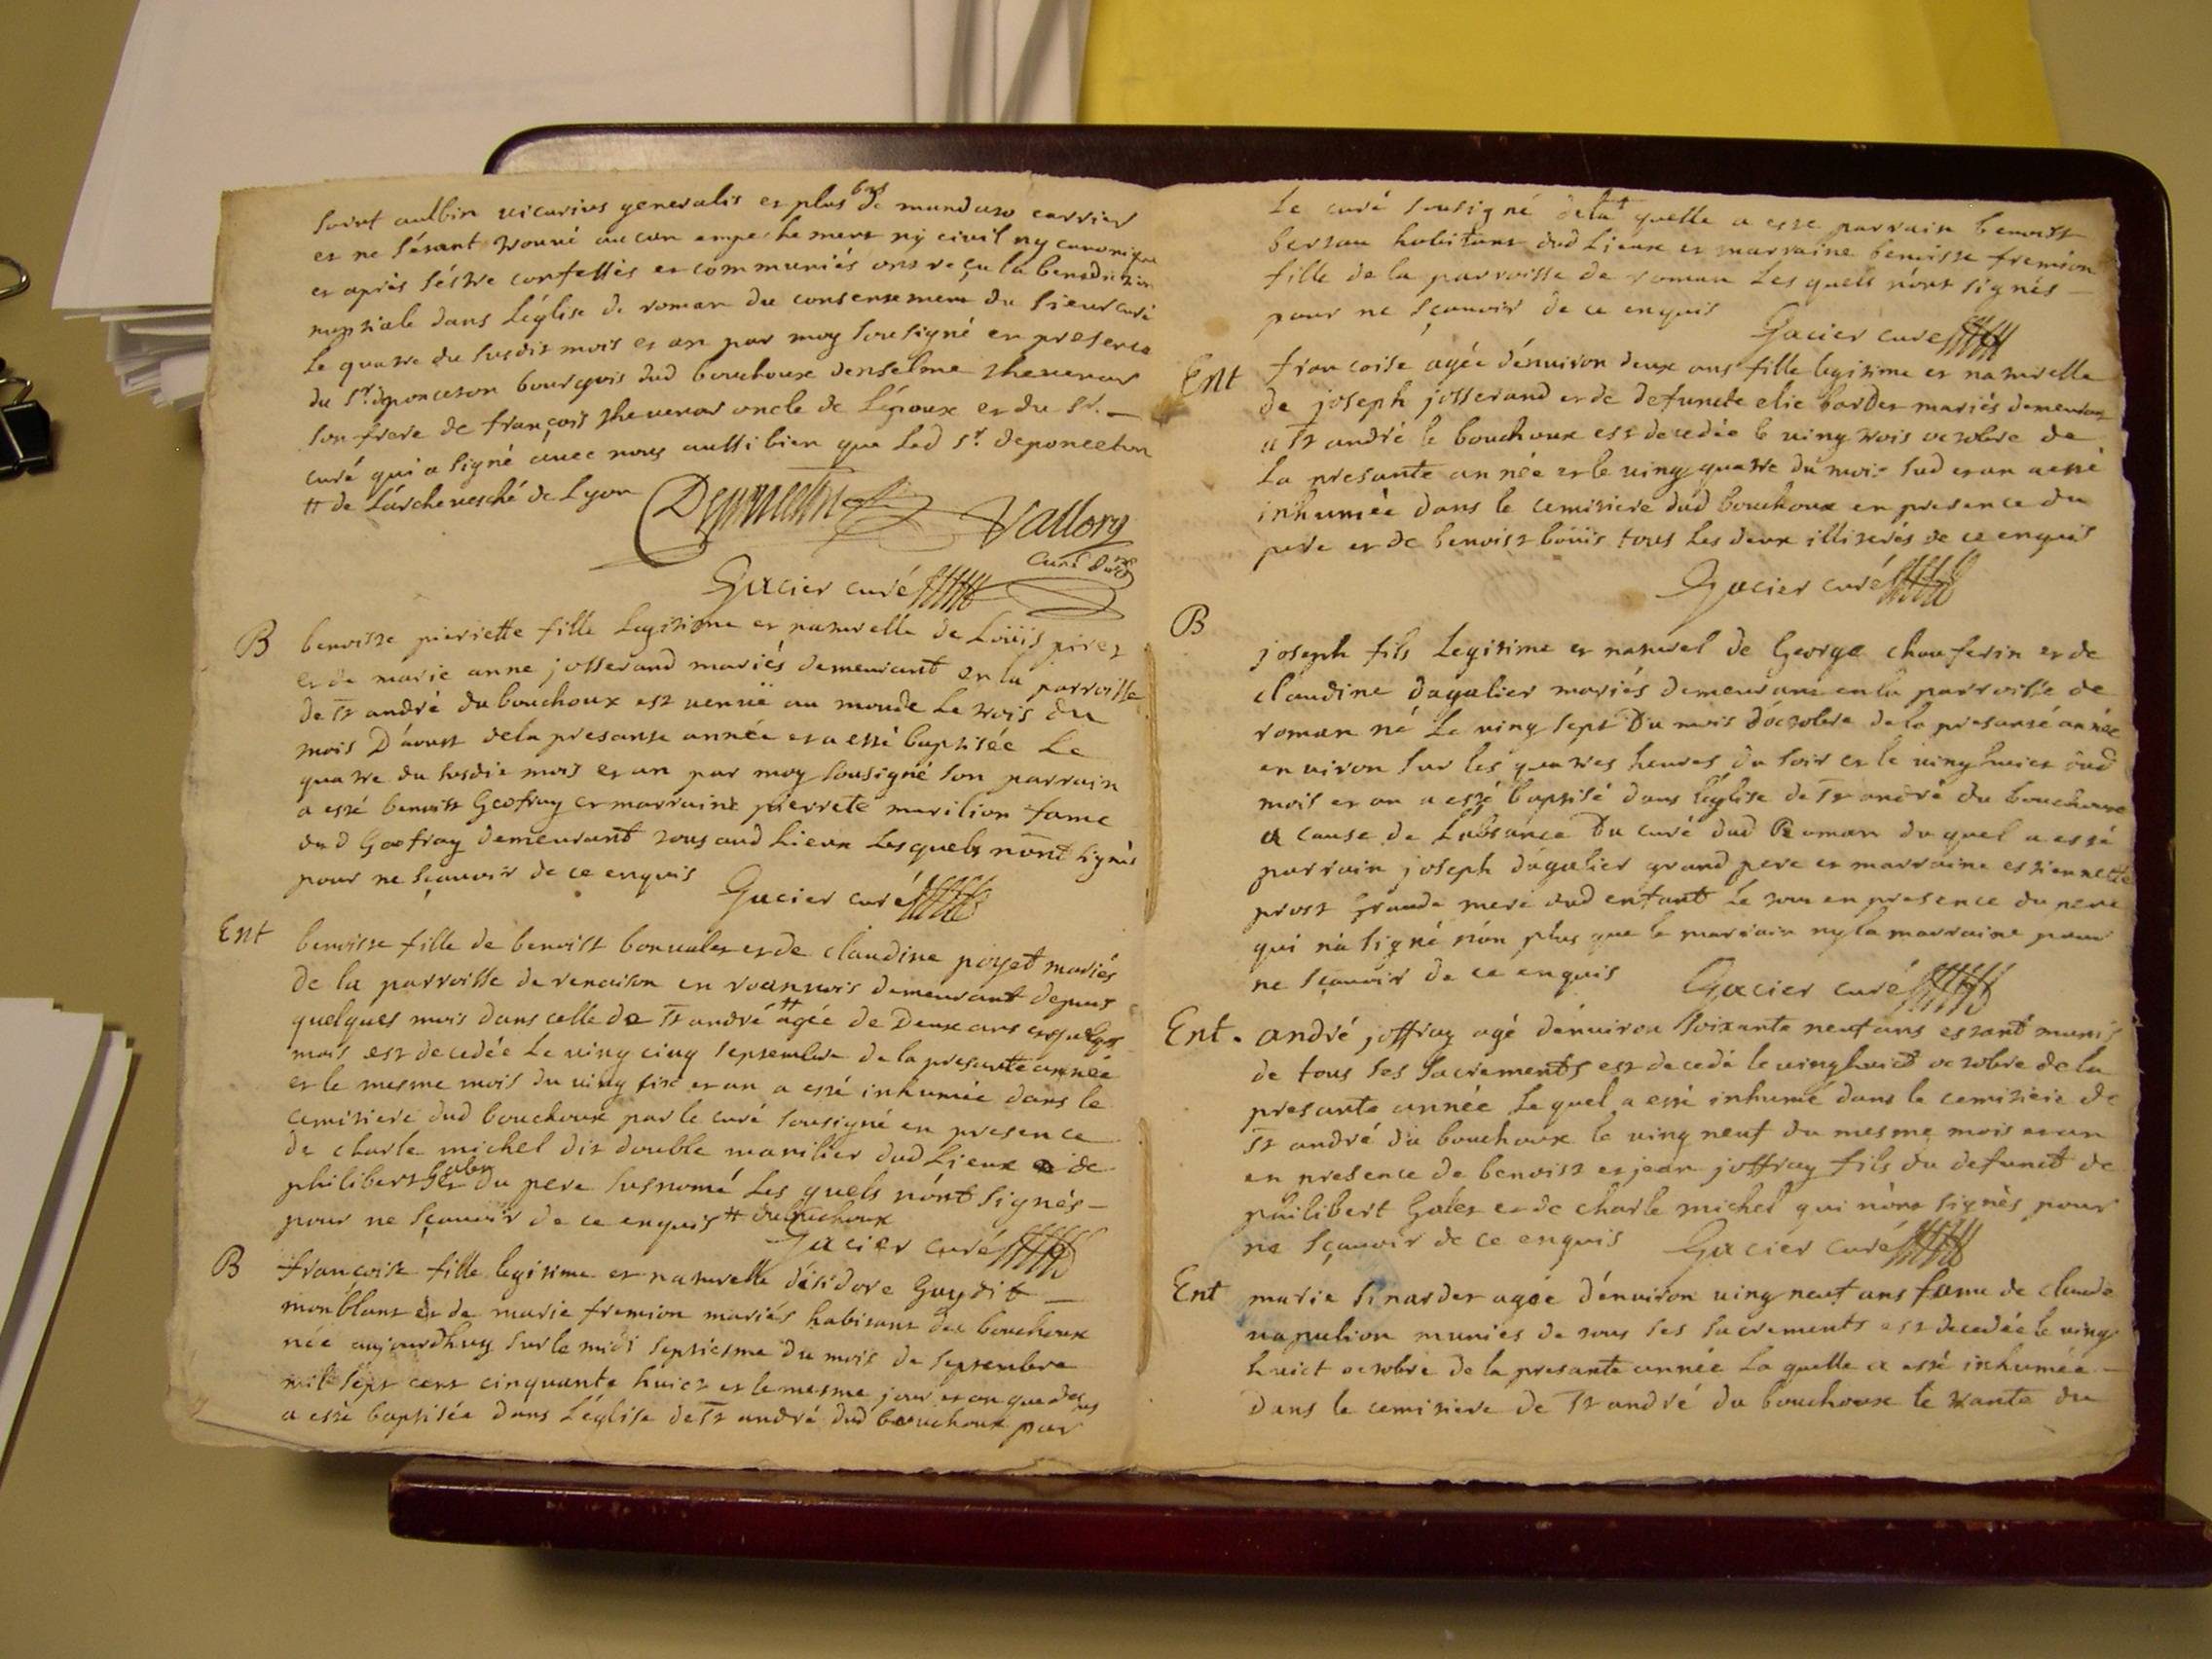 saint aulbin vicarius generalis et plus bas de mandato carrier
et ne sésant trouvé aucun empechement ny civil ny canonique
et après séstre confessés et communiés ont reçu la benediction
nuptiale dans L'église de roman du consentement du sieur curé
le quatre du susdit mois et an par moy sousigné en presence
du Sr. deponceton bourgois dud bouchoux denselme thevenar
son frere de françois thevenar oncle de L'époux et du Sr. _
curé qui a signé avec nous aussi bien que Led Sr. deponceton
# de L'archevesché de Lyon Deponceton Vallory
curé
Gacier curé
B benoitte pierette fille Legitime et naturelle de Loüis piret
et de marie anne josserand mariés demeurant en la parroisse
de St andré du bouchoux est venuë au monde Le trois du
mois D'aoust de la presante année et a esté baptisée Le
quatre du susdit mois et an par moy sousigné son parrain
a esté benoist Geofray et marraine pierrete marilion fame
dud Geofray demeurant tous aud Lieux Lesquels n'ont signés
pour ne sçauoir de ce enquis Gacier curé
Ent benoitte fille de benoist bonvalet et de claudine poyet mariés
de la parroisse de renaison en roannois demeurant depuis
quelques mois dans celle de St andré # agée de Deux ans et quelques
mois est decedée Le ving cinq septembre de la presante année
et le mesme mois du ving six et an a esté inhumée dans le
cemitiere dud bouchoux par le curé sousigné en presence
de charle michel dit double marilier dud Lieux de
philibert Galet du pere susnomé Les quels n'ont signés _
pour ne sçauoir de ce enquis # du bouchoux
Gacier curé
B françoise fille legitime et naturelle d'isidore Guy dit _
monblant et de marie fremion mariés habitans du bouchoux
née aujourdhuy sur le midi septiesme du mois de septembre
mil sept cent cinquante huict et le mesme jour et an que dessus
a esté baptisée dans L'église de St andré dud bouchoux par
Le curé sousigné de la quelle a esté parrain benoist
bertau habitant dud Lieux et marraine benoitte fremion
fille de la parroisse de roman Les quels n'ont signés _
pour ne sçauoir de ce enquis Gacier curé
Ent françoise agée d'énuiron deux ans fille legitime et naturelle
de joseph josserand et de defuncte elie bardet mariés demeurant
a St andré le bouchoux est decedée le ving trois octobre de
la presante année et le ving quatre du mois sud et an a esté
inhumée dans le cemitiere dud bouchoux en presence du
pere et de benoist boüis tous Les deux illiterés de ce enquis
Gacier curé
B
joseph fils Legitime et naturel de George chouferin et de
claudine dagalier mariés demeurans en la parroisse de
roman né Le ving sept Du mois d'octobre de la presante année
enuiron sur les quatres heures du soir et le ving huict dud
mois et an a esté baptisé dans l'église de St andré du bouchoux
a cause de L'absance Du curé dud Roman du quel a esté
parrain joseph dagalier grand pere et marraine estiennette
prost Grande mere dud enfant Le tout en presence du pere
qui n'a signé n'on plus que le parrain ny la marraine pour
ne sçauoir de ce enquis Gacier curé
Ent. andré joffray agé d'énuiron soixante neuf ans estant munis
de tous ses sacrements est decedé le ving huict octobre de la
presante année Le quel a esté inhumé dans le cemitiere de
St andré du bouchoux le ving neuf du mesme mois et an
en presence de benoist et jean joffray fils du defunct de
philibert Galet et de charle michel qui n'ont signés pour
ne sçauoir de ce enquis Gacier curé
Ent marie sinardet agée d'énuiron ving neuf ans fame de claude
napulion munies de tous ses sacrements est decedée le ving
huict octobre de la presante année La quelle a esté inhumée _
Dans le cemitiere de St andré du bouchoux le trante du